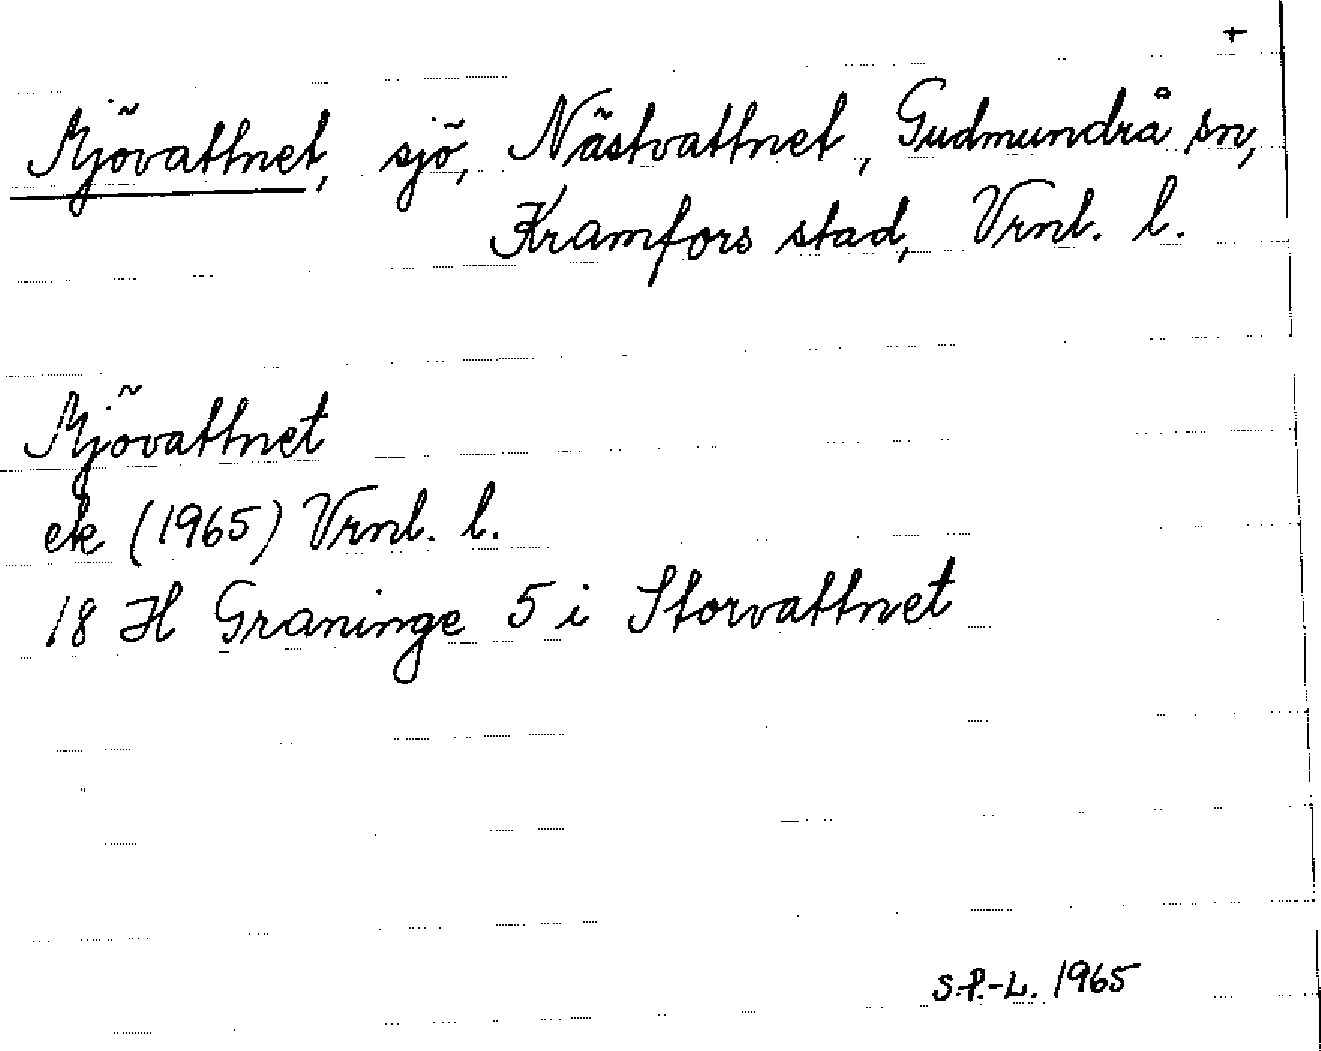 +
Mjövattnet, sjö, Nästvattnet, Gudmundrå sn,
Kramfors stad, Vrnl. l.
Mjövattnet
ek (1965) Vrnl. l.
18 H Graninge 5 i Storvattnet
S.P.-L. 1965